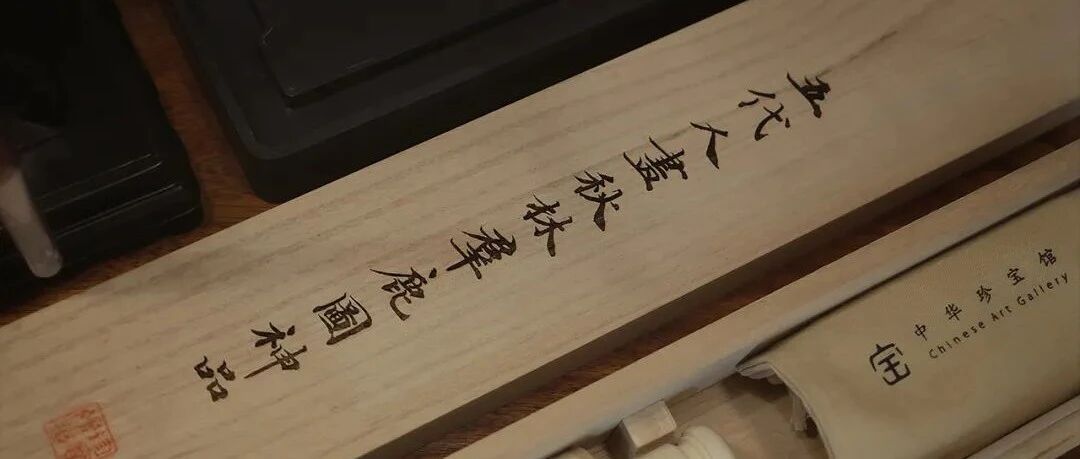 五代人畫秋林羣鹿圖神品
中华珍宝馆
Chinese Art Gallery